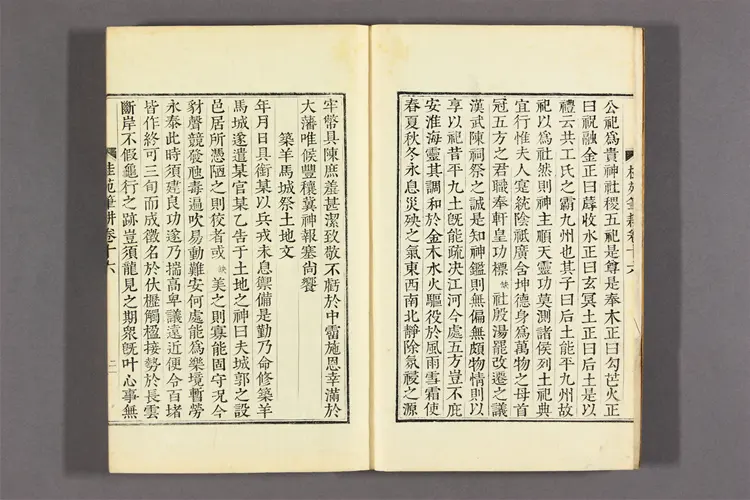 公祀爲貴神社稷五祀是尊是奉木正曰勾芒火正
曰祝融金正曰蓐收水正曰玄冥土正曰后土是以
禮云共工氏之霸九州也其子曰后土能平九州故
祀以爲社然則神主順天靈功莫測諸侯列土祀典
宜行惟夫人寔統陰祇廣含坤德身爲萬物之母首
冠五方之君職奉軒皇功標缺社殷湯罷改遷之議
漢武陳祠祭之誠是知神鑑則無偏無頗物情則以
享以祀昔平九土旣能疏决江河今處五方豈不庇
安淮海靈其調和於金木水火驅役於風雨雪霜使
春夏秋冬永息災殃之氣東西南北靜除氛祲之源
桂苑筆耕卷十六
牢幣具陳庶羞甚潔致敬不虧於中霤施恩幸滿於
大藩唯候豐穰冀神報塞尙饗
築羊馬城祭土地文
年月日具銜某以兵戎未息禦備是勤乃命修築羊
馬城遂遣某官某乙告于土地之神曰夫城郭之設
邑居所憑陋之則狡者或缺美之則寡能固守況今
豺聲競發虺毒遍吹易動難安何處能爲樂境暫勞
永泰此時須建良功遂乃揣高卑議遠近便令百堵
皆作終可三旬而成徵名於伏櫪觸楹接勢於長雲
斷岸不假龜行之跡豈須龍見之期衆旣叶心事無
桂苑筆耕卷十六
二